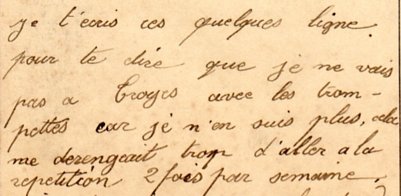 je t'écris ces quelques ligne
pour te dire que je ne vais
pas a Troyes avec les trom-
pettes car je n'en suis plus, cela
me derengeait trop d'aller a la
repetition 2 fois par semaine.